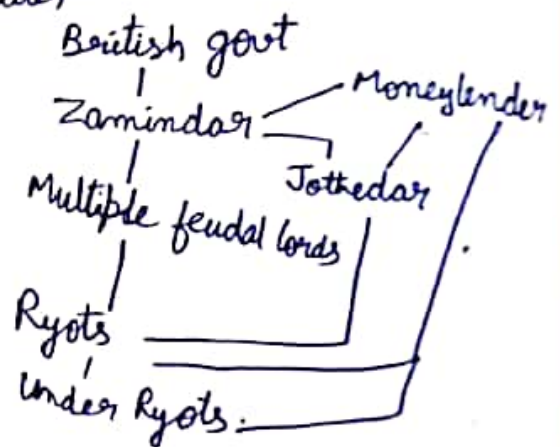 British govt
Zamindar
Moneylender
Jothedar
Multiple feudal lords
Ryots
Under Ryots.